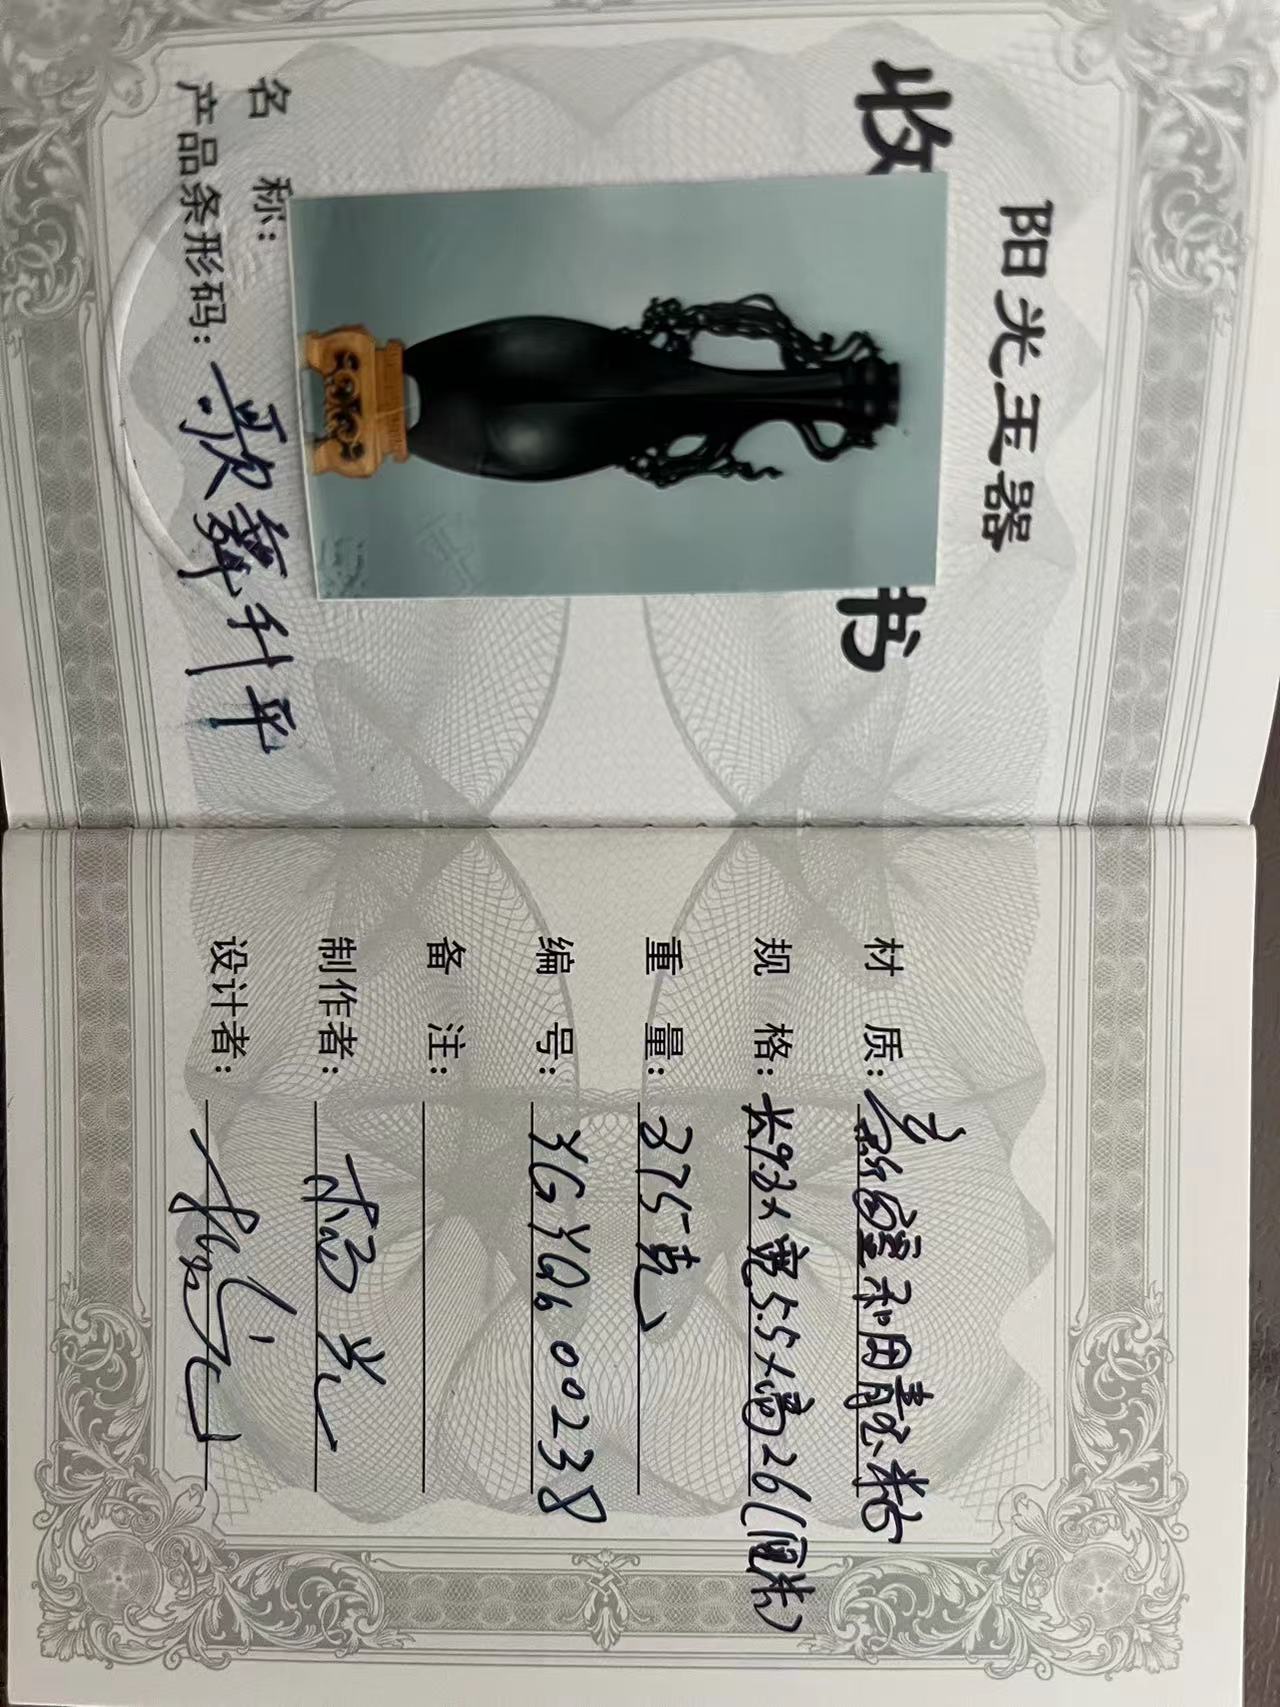 阳光玉器
收 书
名 称：
产品条形码： 歌舞升平
材 质： 新疆和田青玉籽
规 格： 长9.2×宽5.5×高26(厘米)
重 量： 275克
编 号： YGYQ600238
备 注：
制作者： 光
设计者：